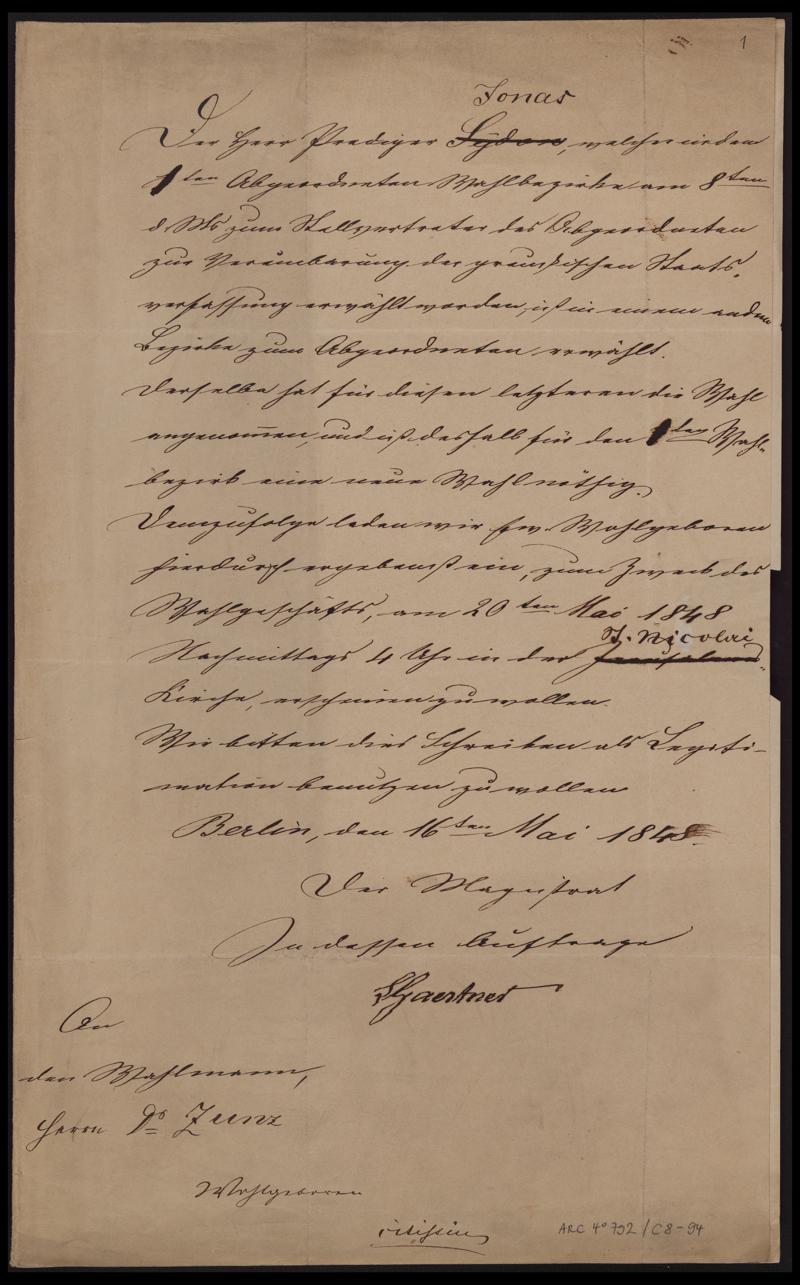 1
Jonas
Der Herr Prediger Sydow, welcher in dem
1ten Abgeordneten Wahlbezirke am 8ten
d. Mts zum Stellvertreter des Abgeordneten
zur Vereinbarung der preußischen Staats-
verfassung erwählt worden, ist in einem andern
Bezirke zum Abgeordneten erwählt.
Derselbe hat für diesen letzteren die Wahl
angenommen, und ist deshalb für den 1ten Wahl-
bezirk eine neue Wahl nöthig.
Demzufolge laden wir Ew. Wohlgeboren
hierdurch ergebenst ein, zum Zweck des
Wahlgeschäfts, am 20ten Mai 1848
St. Nicolai
Nachmittags 4 Uhr in der Jerusalems-
Kirche, erscheinen zu wollen.
Wir bitten dies Schreiben als Legiti-
mation benutzen zu wollen
Berlin, den 16ten Mai 1848.
Der Magistrat
In dessen Auftrage
Gaertner
An
den Wahlmann,
Herrn Dr Zunz
Wohlgeboren
ARC 4° 792 / C8-94